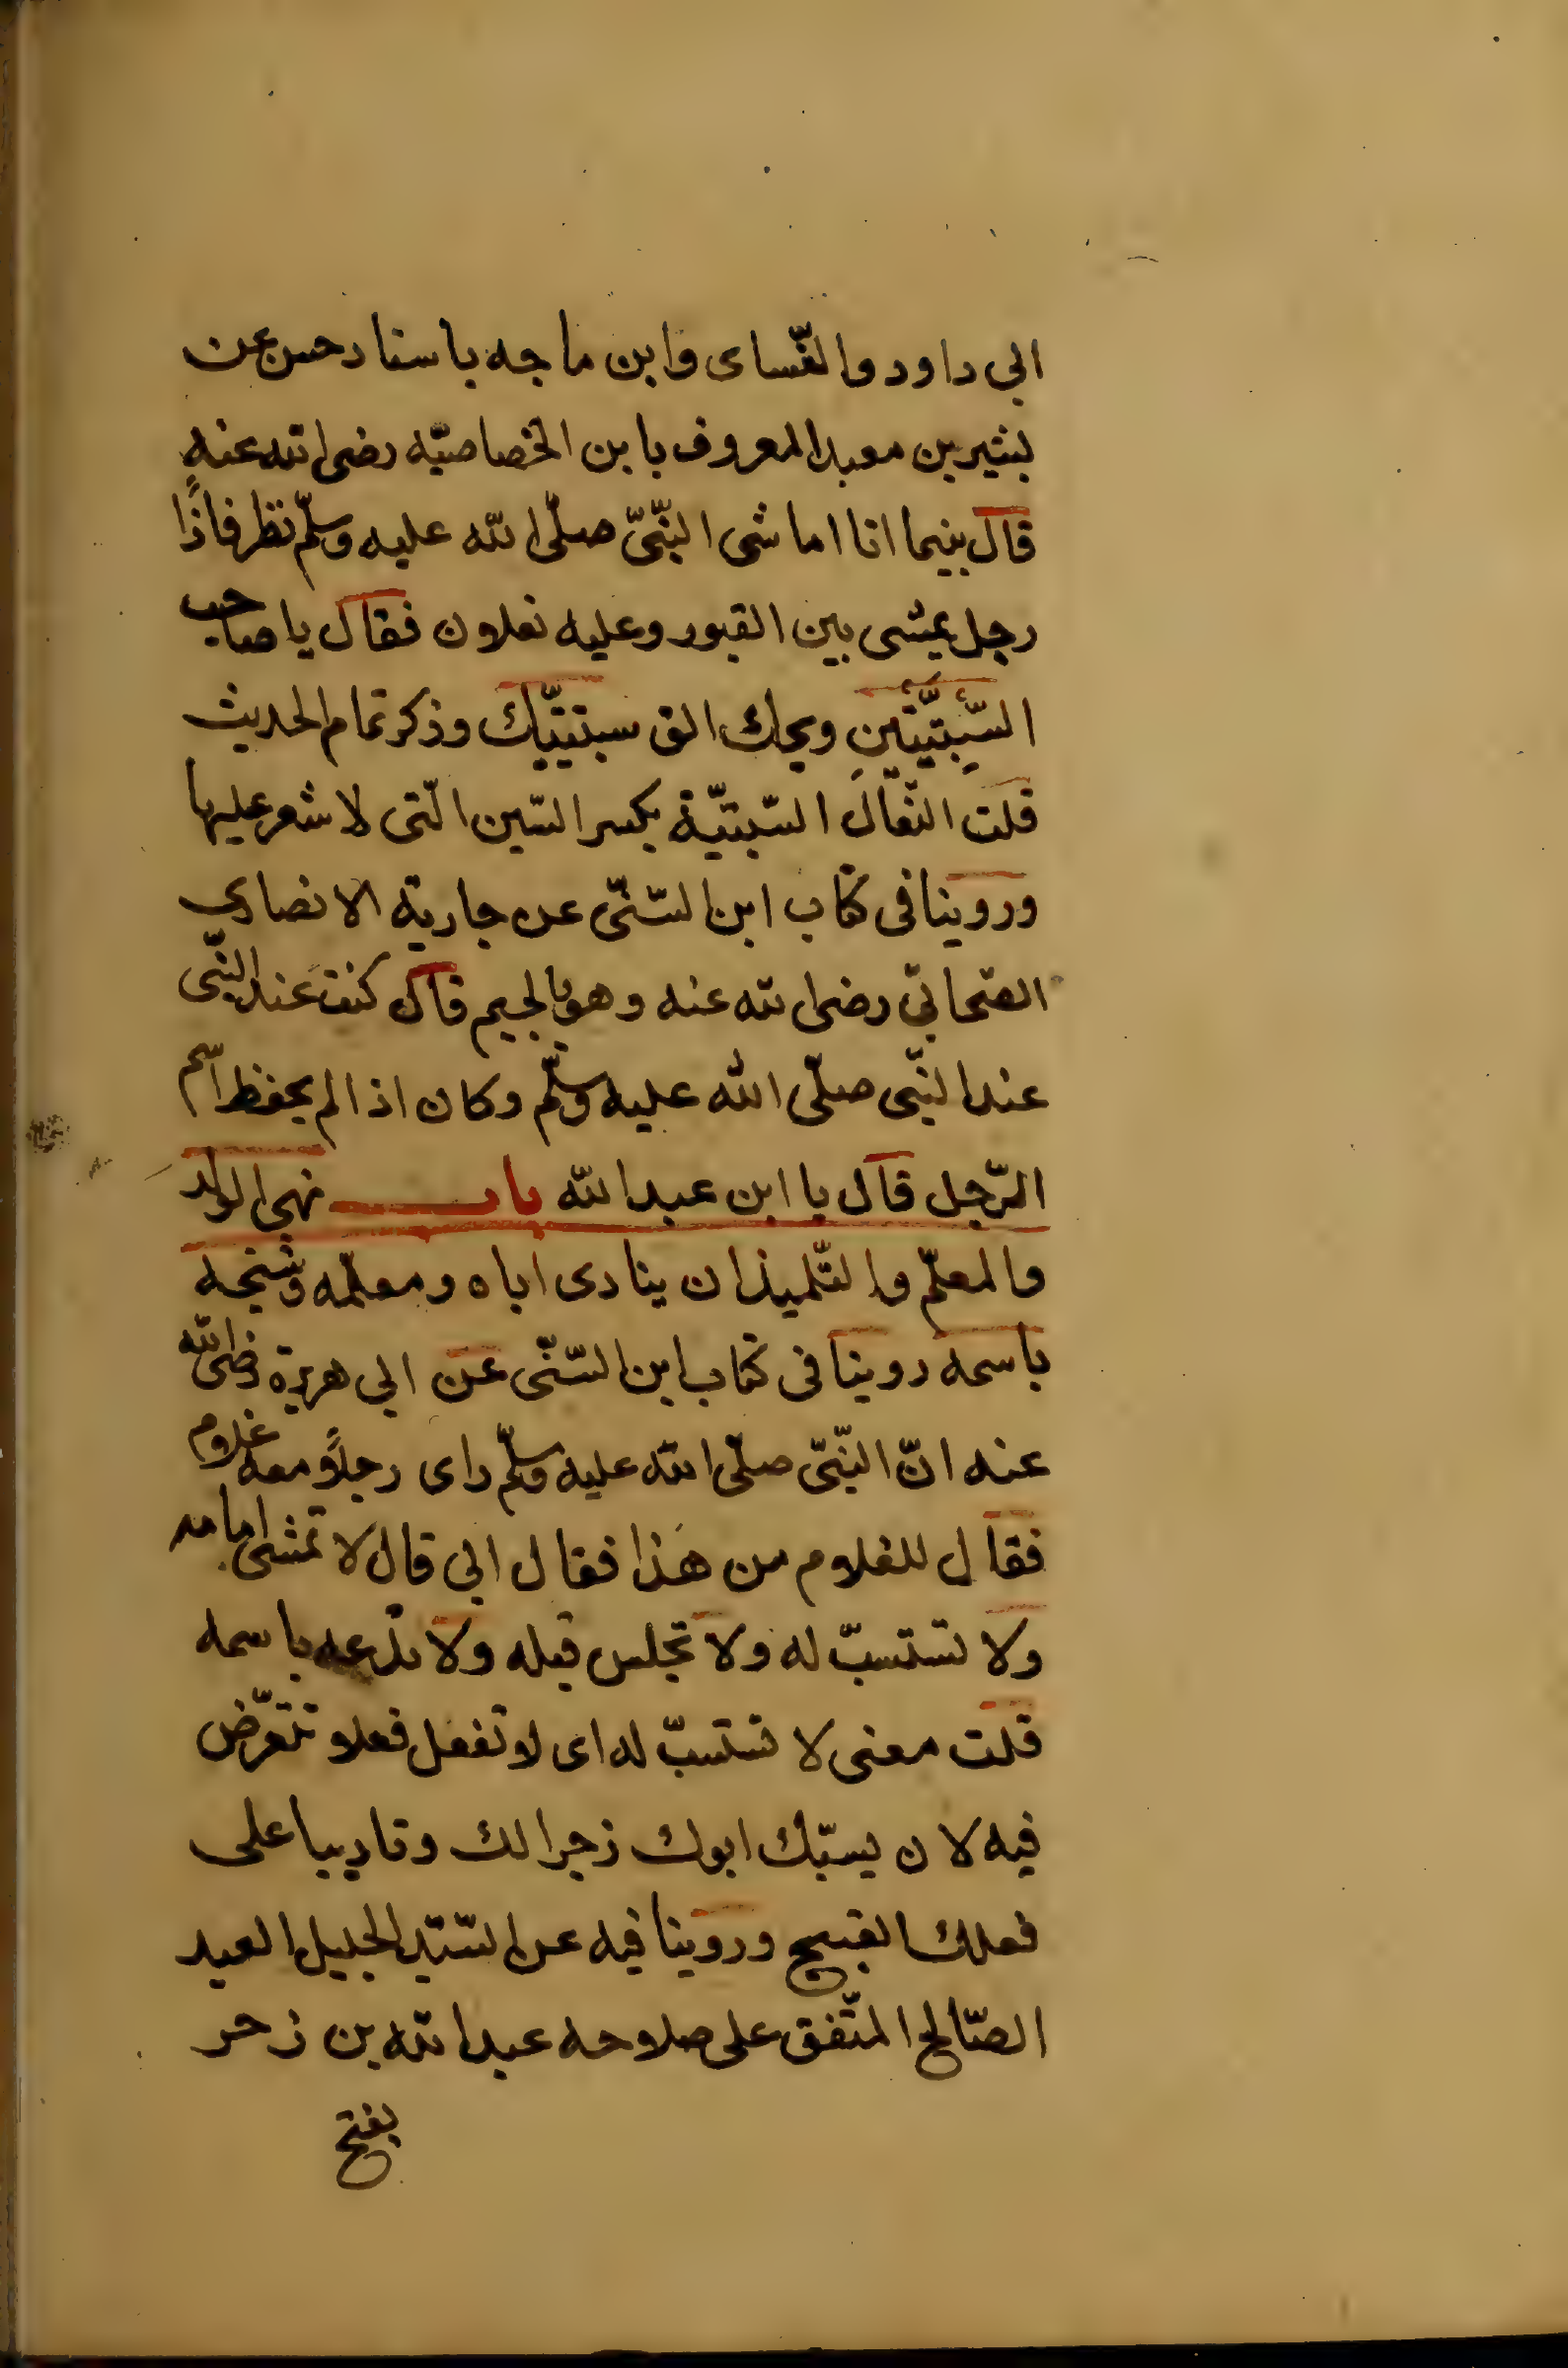 ابى داود والنّساى وابن ماجه باسناد حسن عن
بشير بن معبد المعروف بابن الخصاصيّه رضى الله عنه
قال بينما انا اماشى النّبىّ صلّى الله عليه وسلّم نظر فاذًا
رجل يمشى بين القبور وعليه نعلان فقال يا صاحب
السِّبتيّتين ويحك الق سبتيتيّك وذكر تمام الحديث
قلت النّعال السّبتيّة بكسر السّين الّتى لا شعر عليها
وروينا فى كتاب ابن السّنّى عن جارية الانصارى
الصّحابىّ رضى الله عنه وهو بالجيم قال كنت عند النّبى
عند النّبى صلّى الله عليه وسلّم وكان اذا لم يحفظ اسم
الرّجل قال يا ابن عبد الله باب نهى الولد
والمعلّم والتّلميذ ان ينادى اباه ومعلّمه وشيخه
باسمه روينا فى كتاب ابن السّنّى عن ابى هريرة رضى الله
عنه انّ النّبىّ صلّى الله عليه وسلّم راى رجلًا ومعه غلام
فقال للغلام من هذا فقال ابى قال لا تمشى امامه
ولا تستسبّ له ولا تجلس قبله ولا تدعه باسمه
قلت معنى لا تستسبّ له اى لا تفعل فعلا تتعرّض
فيه لان يسبّك ابوك زجرا لك وتاديبا على
فعلك القبيح وروينا فيه عن السّيّد الجليل العبد
الصّالح المتّفق على صلاحه عبد الله بن زحر
بفتح